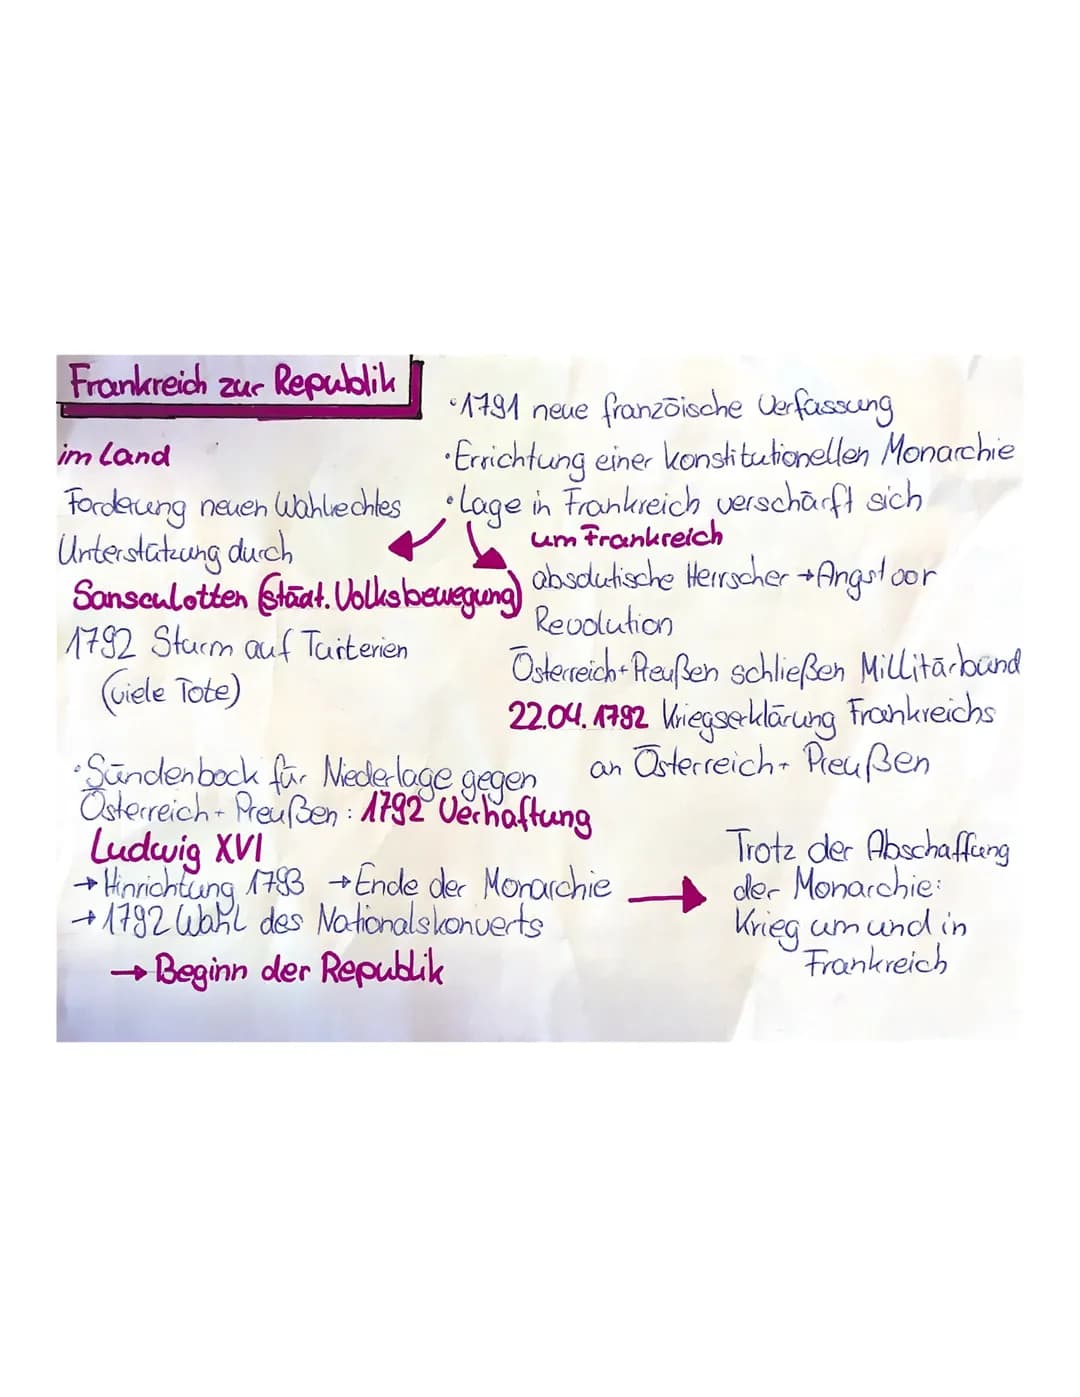 Frankreich zur Republik
·1791 neue französische Verfassung
·Errichtung einer konstitutionellen Monarchie
·Lage in Frankreich verschärft sich
im Land
Forderung neuen Wahlrechtes
Unterstützung durch
Sansculotten (städt. Volksbewegung)
1792 Sturm auf Tuiterien
(viele Tote)
um Frankreich
absolutische Herrscher → Angst vor
Revolution
Österreich + Preußen schließen Millitärbund
22.04.1792 Kriegserklärung Frankreichs
an Österreich + Preußen
·Sündenbock für Niederlage gegen
Österreich + Preußen: 1792 Verhaftung
Ludwig XVI
→ Hinrichtung 1793 → Ende der Monarchie
→ 1792 Wahl des Nationalskonverts
→ Beginn der Republik
Trotz der Abschaffung
der Monarchie:
Krieg um und in
Frankreich